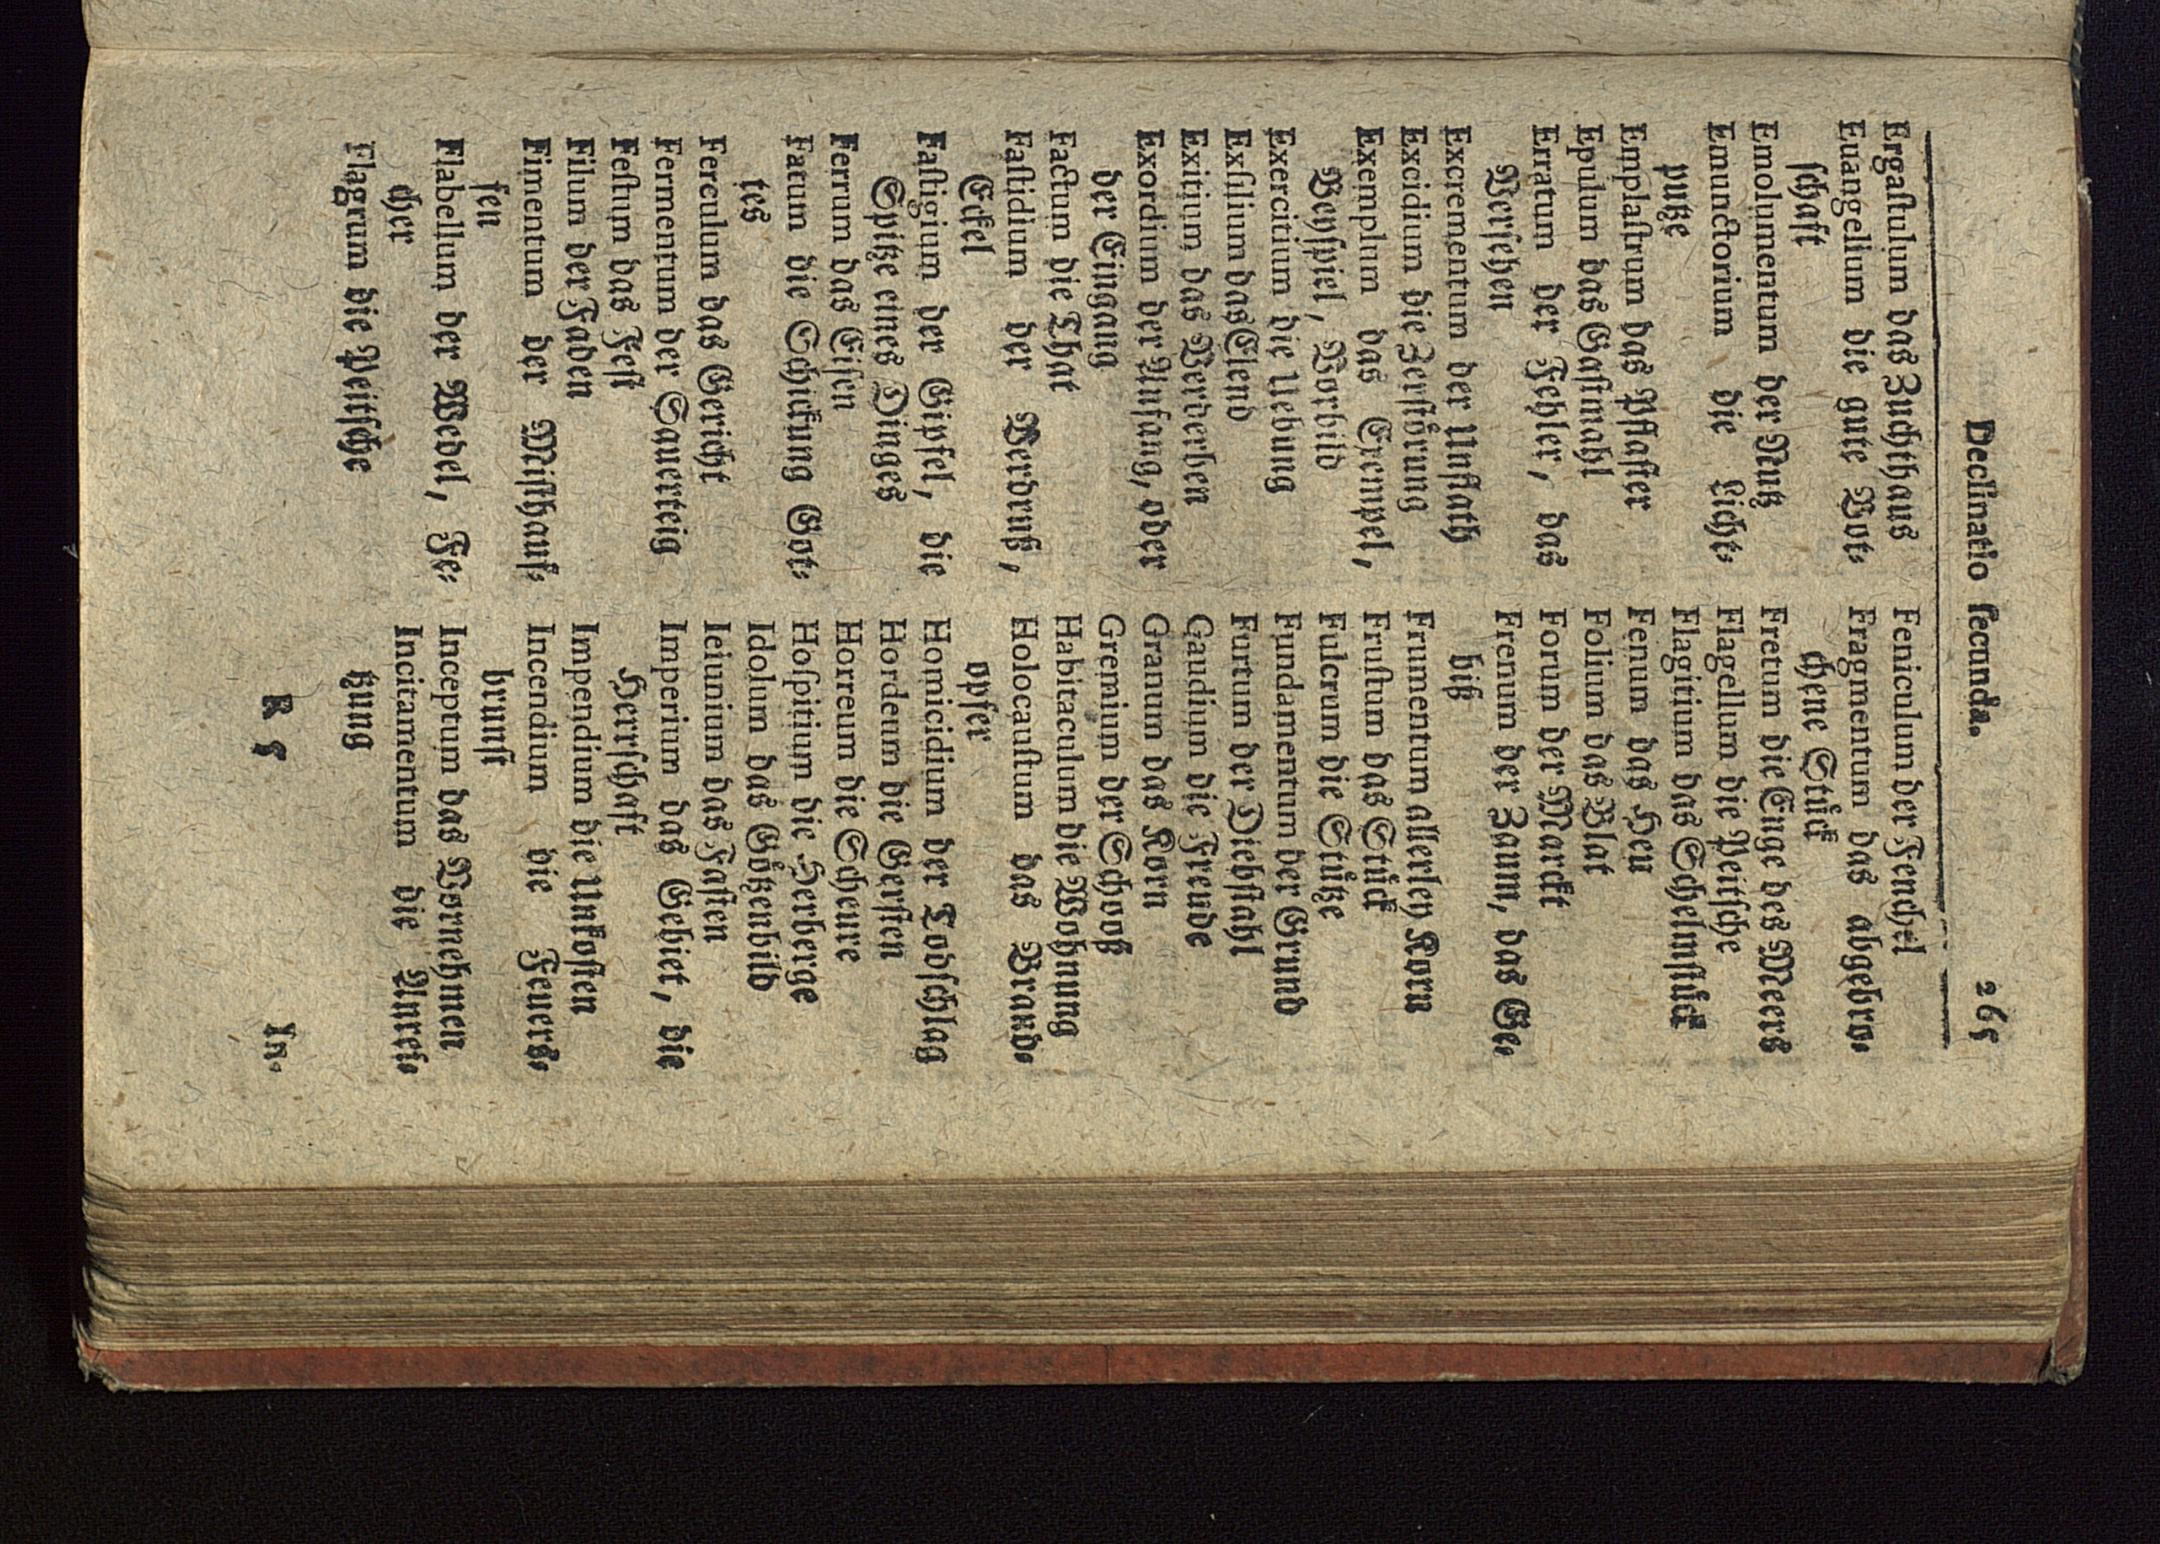 Declinatio ſecunda. 265
Ergaſtulum das Zuchthaus
Euangelium die gute Bot⸗
ſchaft
Emolumentum der Nutz
Emunctorium die Licht⸗
putze
Emplaſtrum das Pflaſter
Epulum das Gaſtmahl
Erratum der Fehler, das
Verſehen
Excrementum der Unflath
Excidium die Zerſtoͤrung
Exemplum das Exempel,
Beyſpiel, Vorbild
Exercitium die Uebung
Exſilium das Elend
Exitium das Verderben
Exordium der Anfang, oder
der Eingang
Factum die That
Faſtidium der Verdruß,
Eckel
Faſtigium der Gipfel, die
Spitze eines Dinges
Ferrum das Eiſen
Fatum die Schickung Got⸗
tes
Ferculum das Gericht
Fermentum der Sauerteig
Feſtum das Feſt
Filum der Faden
Fimentum der Miſthauf⸗
fen
Flabellum der Wedel, Fe⸗
cher
Flagrum die Peitſche
Feniculum der Fenchel
Fragmentum das abgebro⸗
chene Stuͤck
Fretum die Enge des Meers
Flagellum die Peitſche
Flagitium das Schelmſtuͤck
Fenum das Heu
Folium das Blat
Forum der Marckt
Frenum der Zaum, das Ge⸗
biß
Frumentum allerley Korn
Fruſtum das Stuͤck
Fulcrum die Stuͤtze
Fundamentum der Grund
Furtum der Diebſtahl
Gaudium die Freude
Granum das Korn
Gremium der Schooß
Habitaculum die Wohnung
Holocauſtum das Brand⸗
opfer
Homicidium der Todſchlag
Hordeum die Gerſten
Horreum die Scheure
Hoſpitium die Herberge
Idolum das Goͤtzenbild
Ieiunium das Faſten
Imperium das Gebiet, die
Herrſchaft
Impendium die Unkoſten
Incendium die Feuers⸗
brunſt
Inceptum das Vornehmen
Incitamentum die Anrei⸗
tzung
R 5 In⸗